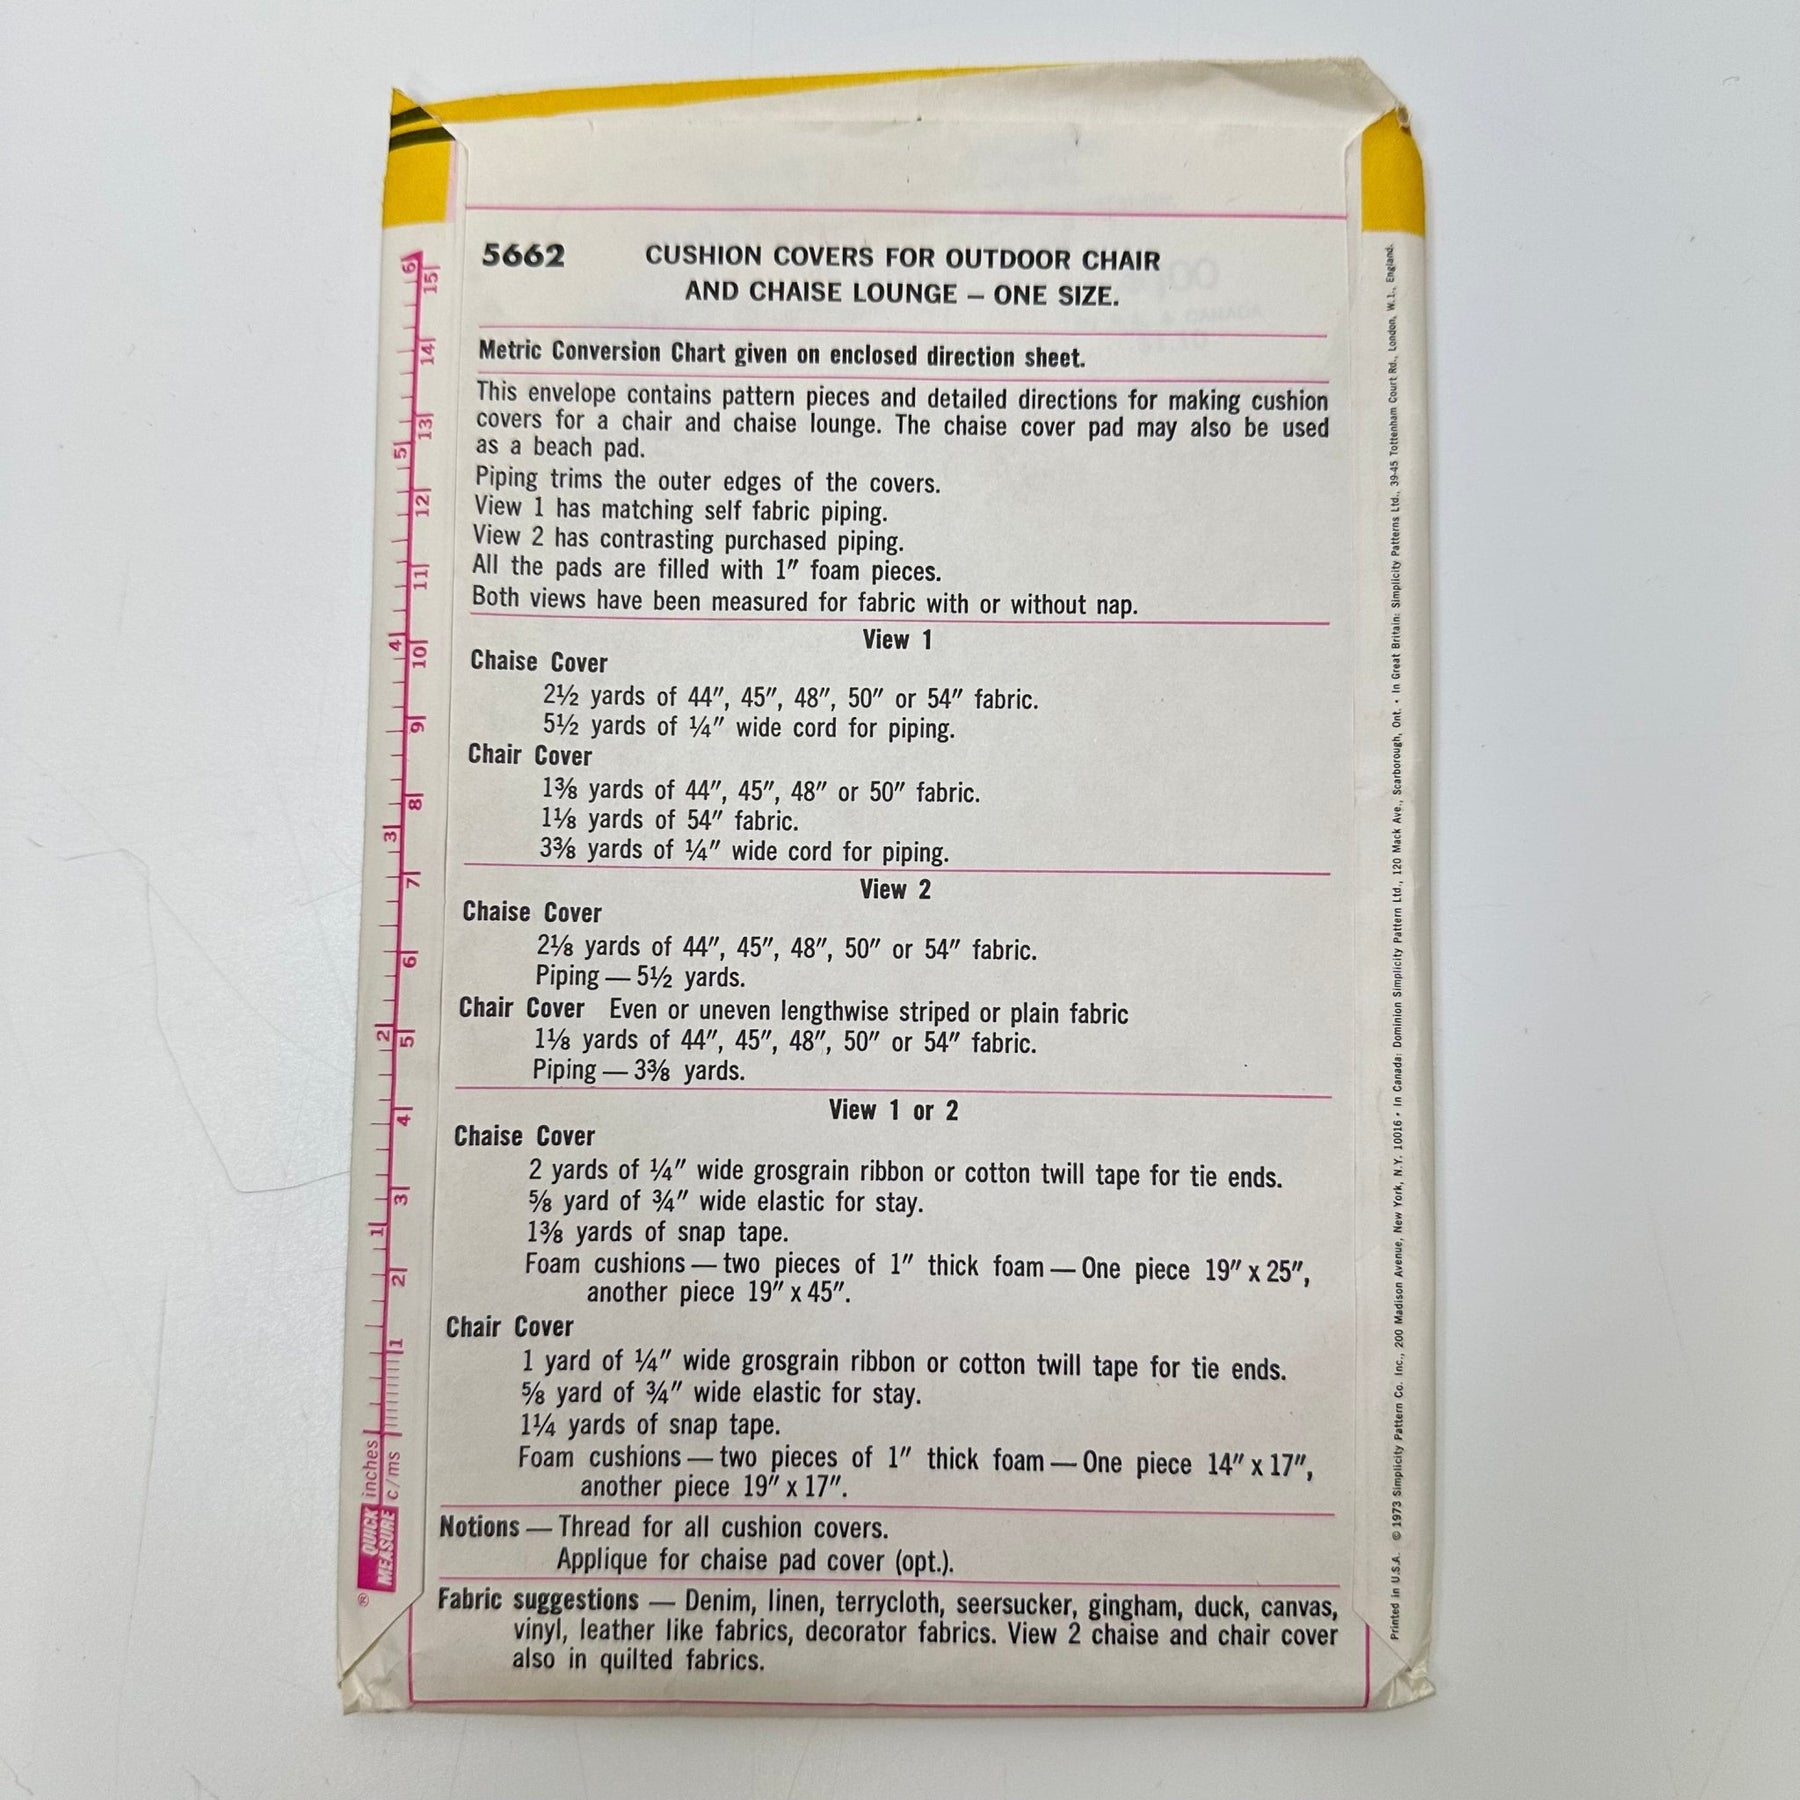 5662 CUSHION COVERS FOR OUTDOOR CHAIR
AND CHAISE LOUNGE – ONE SIZE.
Metric Conversion Chart given on enclosed direction sheet.
This envelope contains pattern pieces and detailed directions for making cushion
covers for a chair and chaise lounge. The chaise cover pad may also be used
as a beach pad.
Piping trims the outer edges of the covers.
View 1 has matching self fabric piping.
View 2 has contrasting purchased piping.
All the pads are filled with 1″ foam pieces.
Both views have been measured for fabric with or without nap.
View 1
Chaise Cover
2½ yards of 44″, 45″, 48″, 50″ or 54″ fabric.
5½ yards of ¼″ wide cord for piping.
Chair Cover
1⅜ yards of 44″, 45″, 48″ or 50″ fabric.
1⅛ yards of 54″ fabric.
3⅜ yards of ¼″ wide cord for piping.
View 2
Chaise Cover
2⅛ yards of 44″, 45″, 48″, 50″ or 54″ fabric.
Piping — 5½ yards.
Chair Cover Even or uneven lengthwise striped or plain fabric
1⅛ yards of 44″, 45″, 48″, 50″ or 54″ fabric.
Piping — 3⅜ yards.
View 1 or 2
Chaise Cover
2 yards of ¼″ wide grosgrain ribbon or cotton twill tape for tie ends.
⅝ yard of ¾″ wide elastic for stay.
1⅜ yards of snap tape.
Foam cushions — two pieces of 1″ thick foam — One piece 19″ x 25″,
another piece 19″ x 45″.
Chair Cover
1 yard of ¼″ wide grosgrain ribbon or cotton twill tape for tie ends.
⅝ yard of ¾″ wide elastic for stay.
1¼ yards of snap tape.
Foam cushions — two pieces of 1″ thick foam — One piece 14″ x 17″,
another piece 19″ x 17″.
Notions — Thread for all cushion covers.
Applique for chaise pad cover (opt.).
Fabric suggestions — Denim, linen, terrycloth, seersucker, gingham, duck, canvas,
vinyl, leather like fabrics, decorator fabrics. View 2 chaise and chair cover
also in quilted fabrics.
® QUICK MEASURE
inches 1 2 3 4 5 6
c/ms 1 2 3 4 5 6 7 8 9 10 11 12 13 14 15
Printed in U.S.A. © 1973 Simplicity Pattern Co. Inc., 200 Madison Avenue, New York, N.Y. 10016 • In Canada: Dominion Simplicity Pattern Ltd., 120 Mack Ave., Scarborough, Ont. • In Great Britain: Simplicity Patterns Ltd., 39-45 Tottenham Court Rd., London, W.1., England.